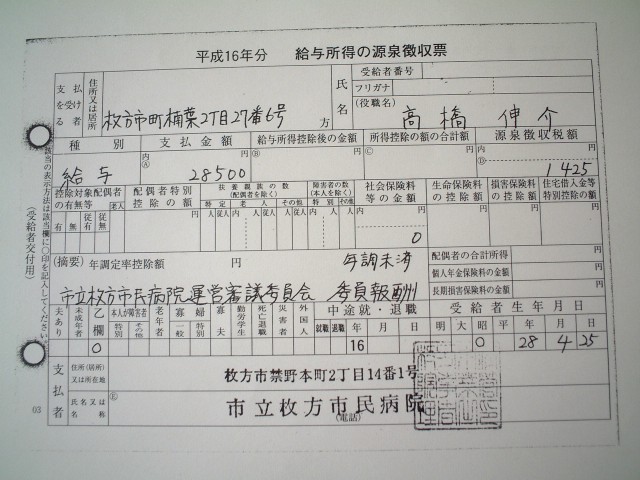 平成16年分 給与所得の源泉徴収票
支払を受ける者
住所又は居所
枚方市町楠葉2丁目27番6号 方
氏名
受給者番号
フリガナ
(役職名)
高橋 伸介
種別 支払金額 給与所得控除後の金額 所得控除の額の合計額 源泉徴収税額
内 円 Ⓑ 円 Ⓒ 円 内 円
給与 Ⓐ 28500 Ⓓ 1425
控除対象配偶者の有無等 老人 配偶者特別控除の額 扶養親族の数(配偶者を除く) 障害者の数(本人を除く) 社会保険料等の金額 生命保険料の控除の額 損害保険料の控除の額 住宅借入金等特別控除の額
特定 老人 その他 特別 その他
有 無 従有 従無 円 人 従人 内 人 従人 人 従人 内 人 人 内 円 円 円 円
0
(摘要) 年調定率控除額 円 年調未済
市立枚方市民病院運営審議委員会 委員報酬
配偶者の合計所得 円
個人年金保険料の金額 円
長期損害保険料の金額 円
夫あり 未成年者 乙欄 本人が障害者 特別 その他 老年者 寡婦 一般 特別 寡夫 勤労学生 死亡退職 災害者 外国人 中途就・退職 受給者生年月日
就職 退職 年 月 日 明 大 昭 平 年 月 日
0 16 0 28 4 25
支払者
住所(居所)又は所在地
枚方市禁野本町2丁目14番1号
氏名又は名称
Ⓔ 市立枚方市民病院
(電話)
03
(受給者交付用)
該当の表示方法は該当欄に〇印を記入してください。